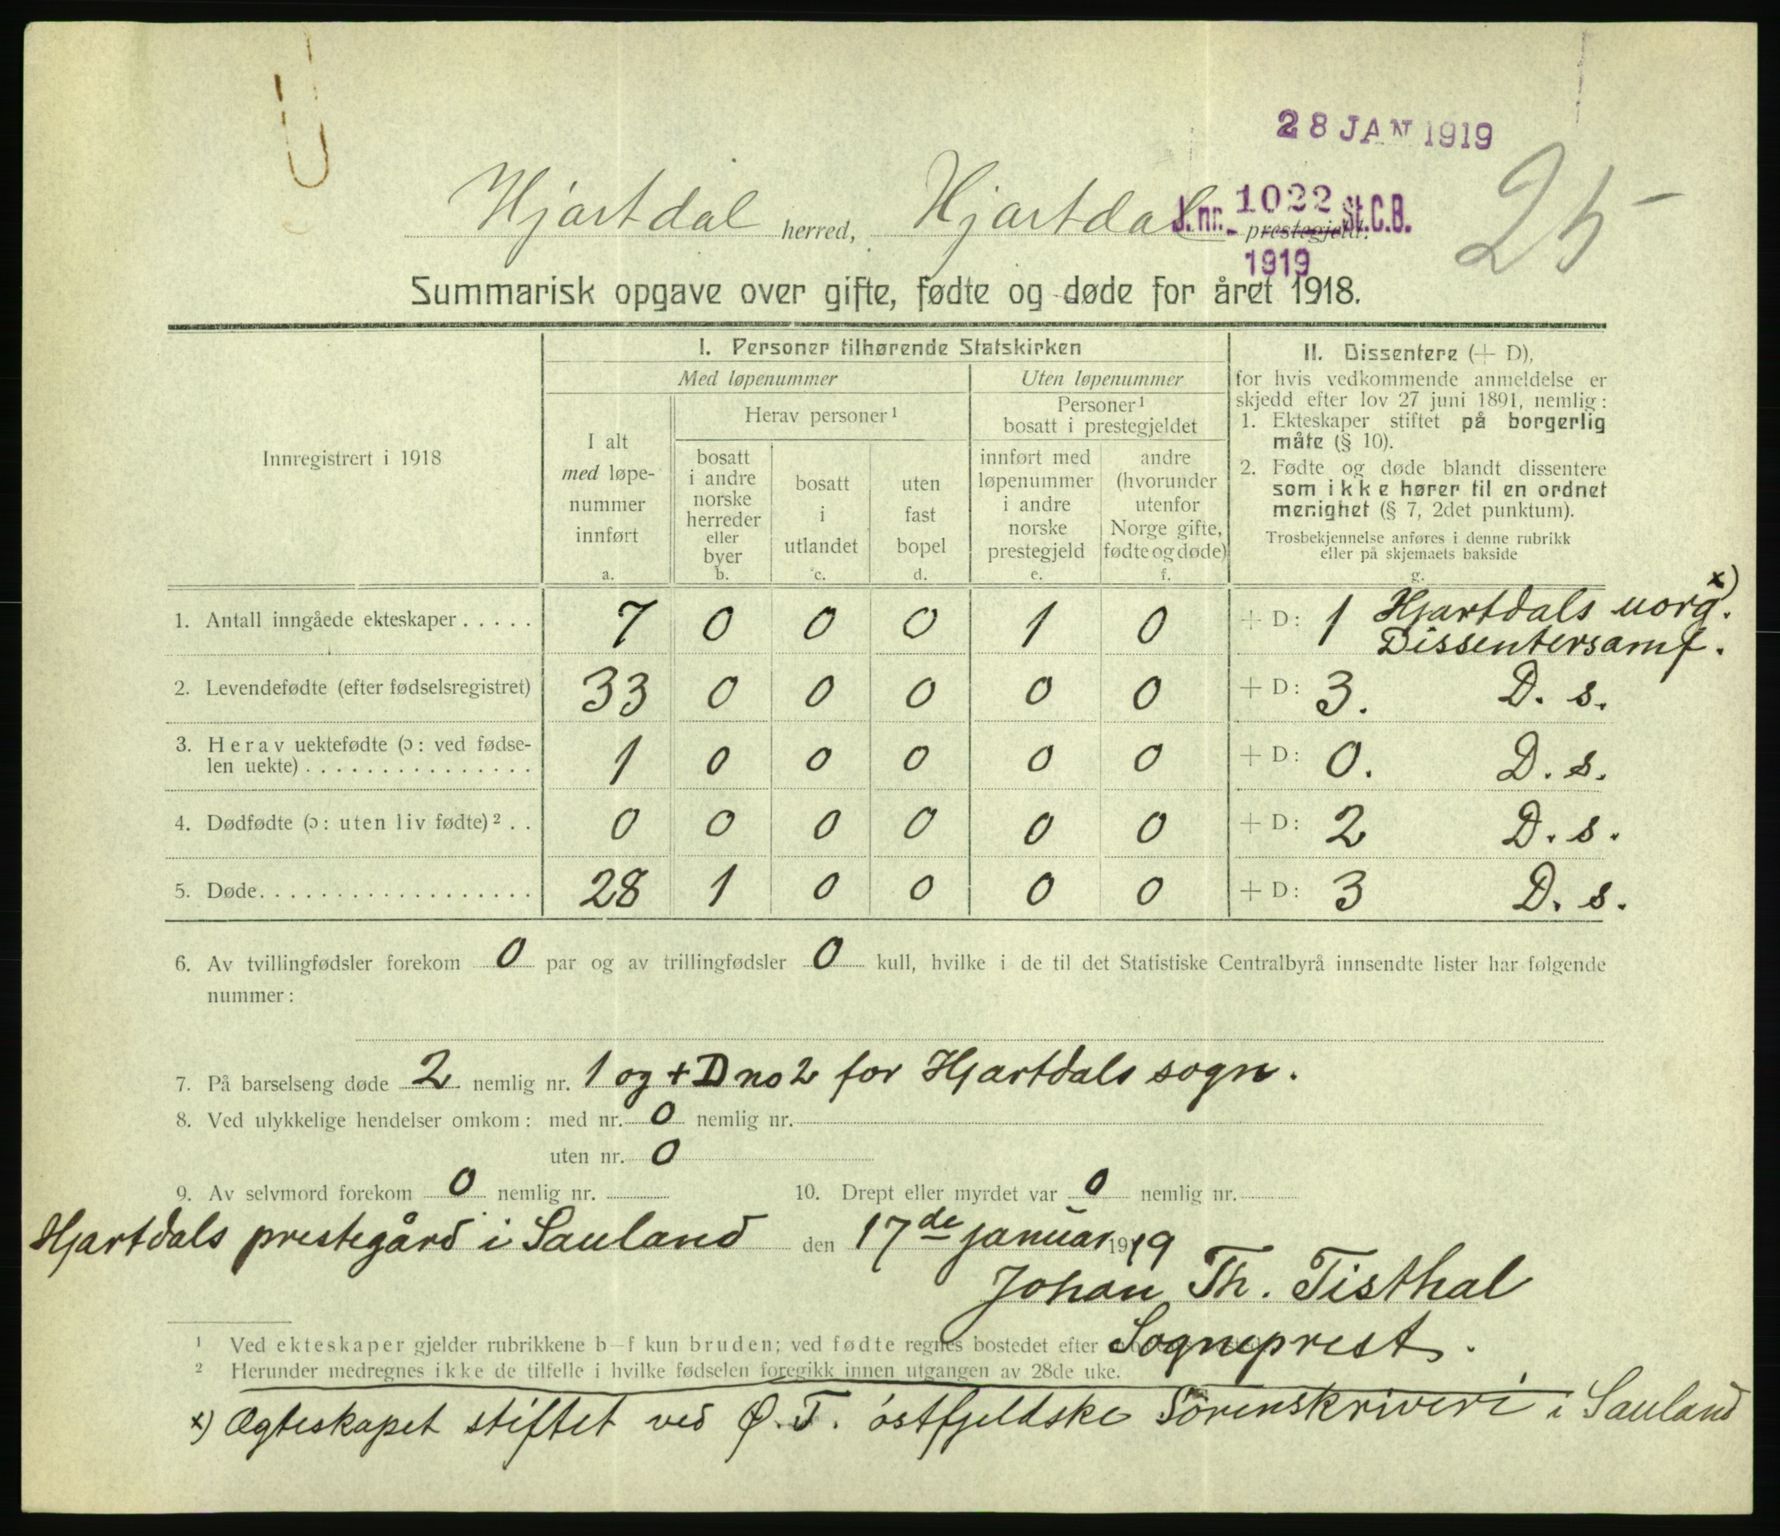 28 JAN 1919
J. nr. 1022 St.C.B.
1919
25
Hjartdal herred, Hjartdal prestegjeld.
Summarisk opgave over gifte, fødte og døde for året 1918.
Innregistrert i 1918
I. Personer tilhørende Statskirken
Med løpenummer
Uten løpenummer
I alt
med løpe-
nummer
innført
a.
Herav personer ¹
bosatt
i andre
norske
herreder
eller
byer
b.
bosatt
i
utlandet
c.
uten
fast
bopel
d.
Personer ¹
bosatt i prestegjeldet
innført med
løpenummer
i andre
norske
prestegjeld
e.
andre
(hvorunder
utenfor
Norge gifte,
fødte og døde)
f.
II. Dissentere (+ D),
for hvis vedkommende anmeldelse er
skjedd efter lov 27 juni 1891, nemlig:
1. Ekteskaper stiftet på borgerlig
måte (§ 10).
2. Fødte og døde blandt dissentere
som ikke hører til en ordnet
menighet (§ 7, 2det punktum).
Trosbekjennelse anføres i denne rubrikk
eller på skjemaets bakside
g.
1. Antall inngåede ekteskaper . . . . . 7 0 0 0 1 0 + D: 1 Hjartdals uorg. x)
Dissentersamf.
2. Levendefødte (efter fødselsregistret) 33 0 0 0 0 0 + D: 3. D. s.
3. Herav uektefødte (ɔ: ved fødse-
len uekte) . . . . . . . . . . . . . . . 1 0 0 0 0 0 + D: 0. D. s.
4. Dødfødte (ɔ: uten liv fødte) ² . . 0 0 0 0 0 0 + D: 2 D. s.
5. Døde. . . . . . . . . . . . . . . . . . 28 1 0 0 0 0 + D: 3 D. s.
6. Av tvillingfødsler forekom 0 par og av trillingfødsler 0 kull, hvilke i de til det Statistiske Centralbyrå innsendte lister har følgende
nummer:
7. På barselseng døde 2 nemlig nr. 1 og + D no 2 for Hjartdals sogn.
8. Ved ulykkelige hendelser omkom: med nr. 0 nemlig nr.
uten nr. 0
9. Av selvmord forekom 0 nemlig nr. 10. Drept eller myrdet var 0 nemlig nr.
Hjartdals prestegård i Sauland den 17de januar 1919
Johan Th. Tisthal
Sogneprest.
¹ Ved ekteskaper gjelder rubrikkene b–f kun bruden; ved fødte regnes bostedet efter
² Herunder medregnes ikke de tilfelle i hvilke fødselen foregikk innen utgangen av 28de uke.
x) Ægteskapet stiftet ved Ø. T. østfjeldske Sorenskriveri i Sauland